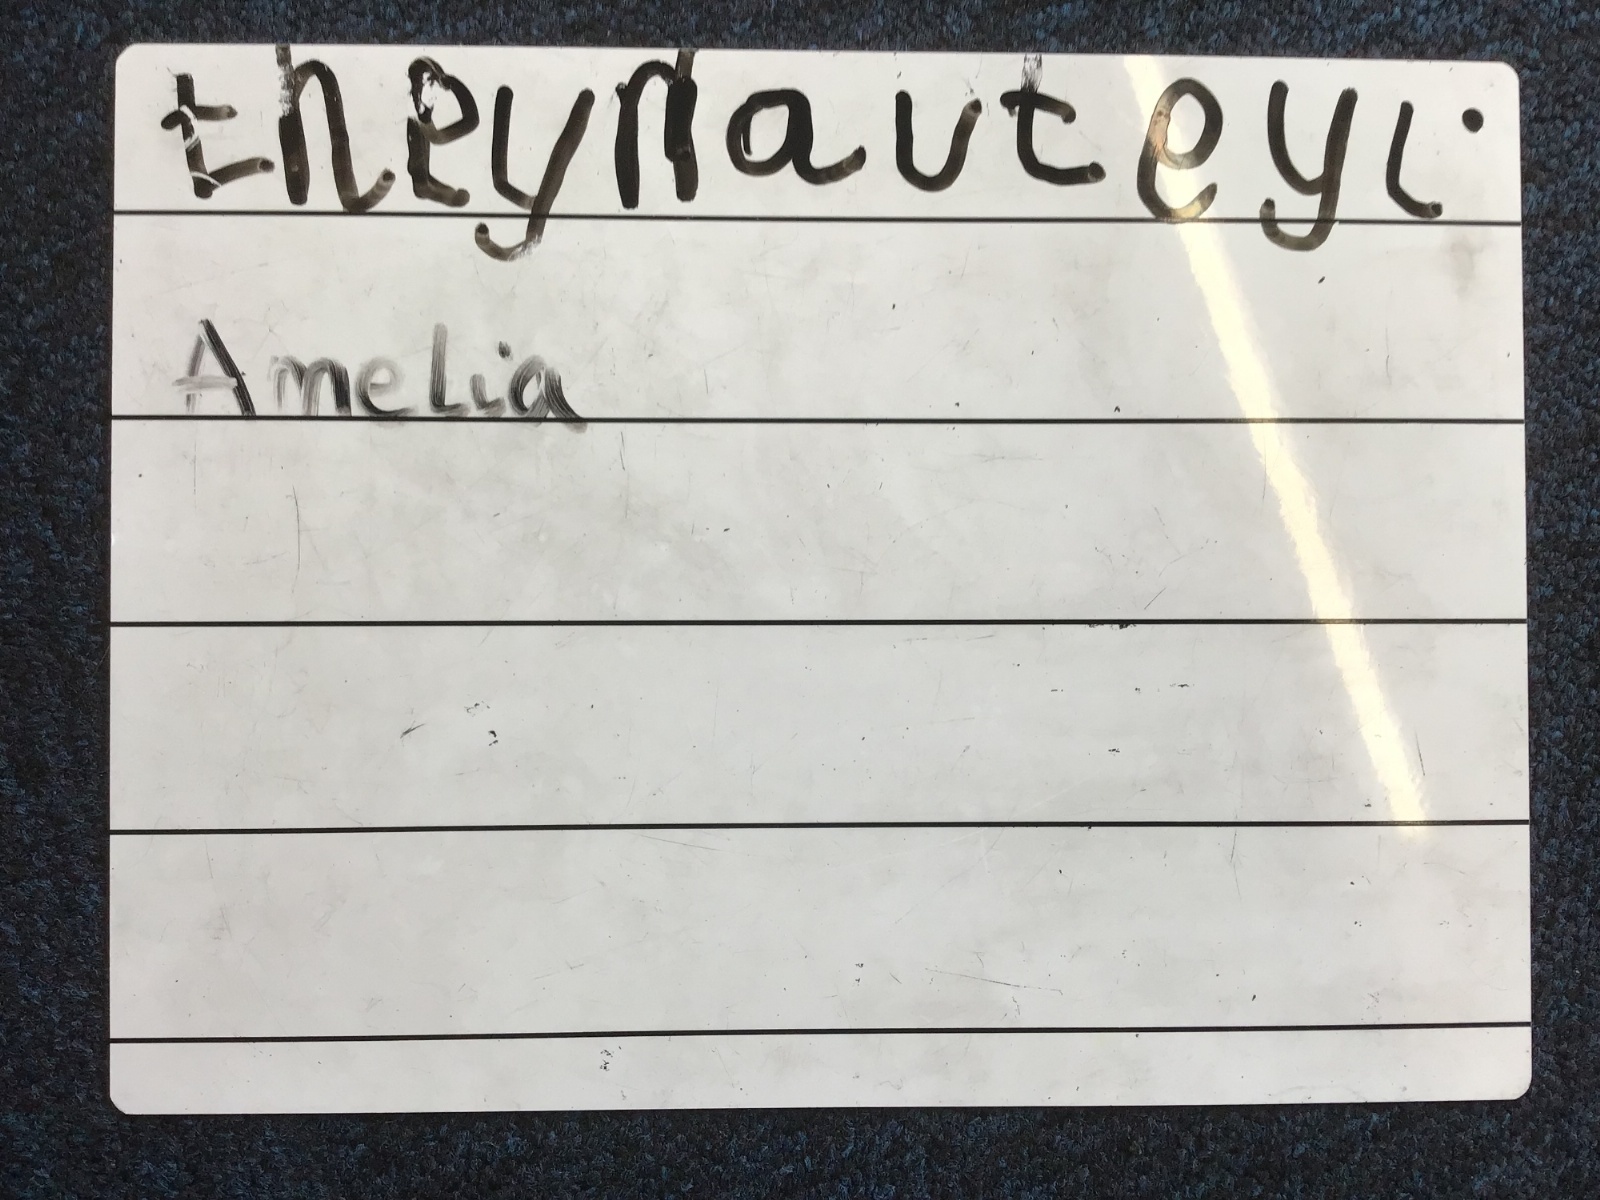 theynauteyi.
Amelia